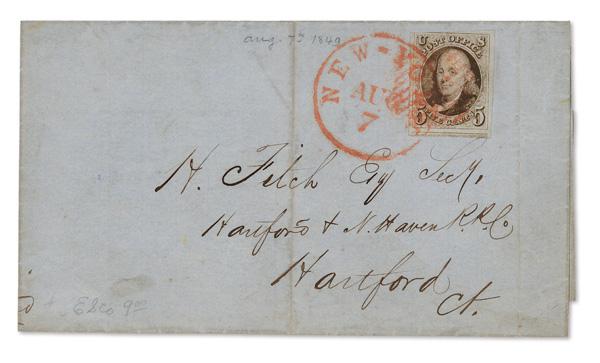 aug. 7th 1849
NEW-YORK
AUG
7
U S
POST OFFICE
FIVE CENTS
5 5
H. Fitch Esq Secy,
Hartford & N. Haven R.R. Co.
Hartford
Ct.